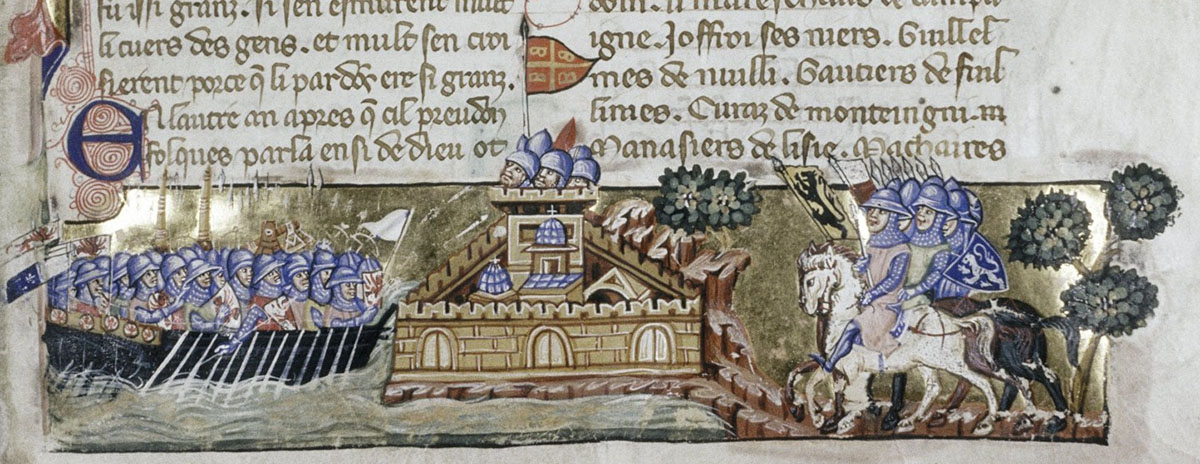 fu issi granz. si sen esmurent mult
li cuers des gens. et mult sen croi
sierent porce q̃ li pardõs ere si granz.
En lautre an apres q̃ cil preudom
folques parla ensi de dieu ot
dom. li mareschaus de campa
igne. Joffroi ses niers. Guillel
mes de nuilli. Gautiers de fuil
limes. Euraz de monteingni. m
Manasiers de lisle. Machaires